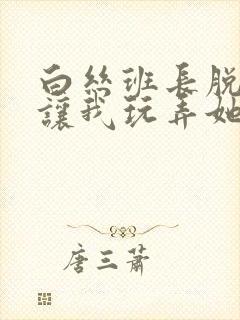 白丝班长脱
讓我玩弄她
唐三萧